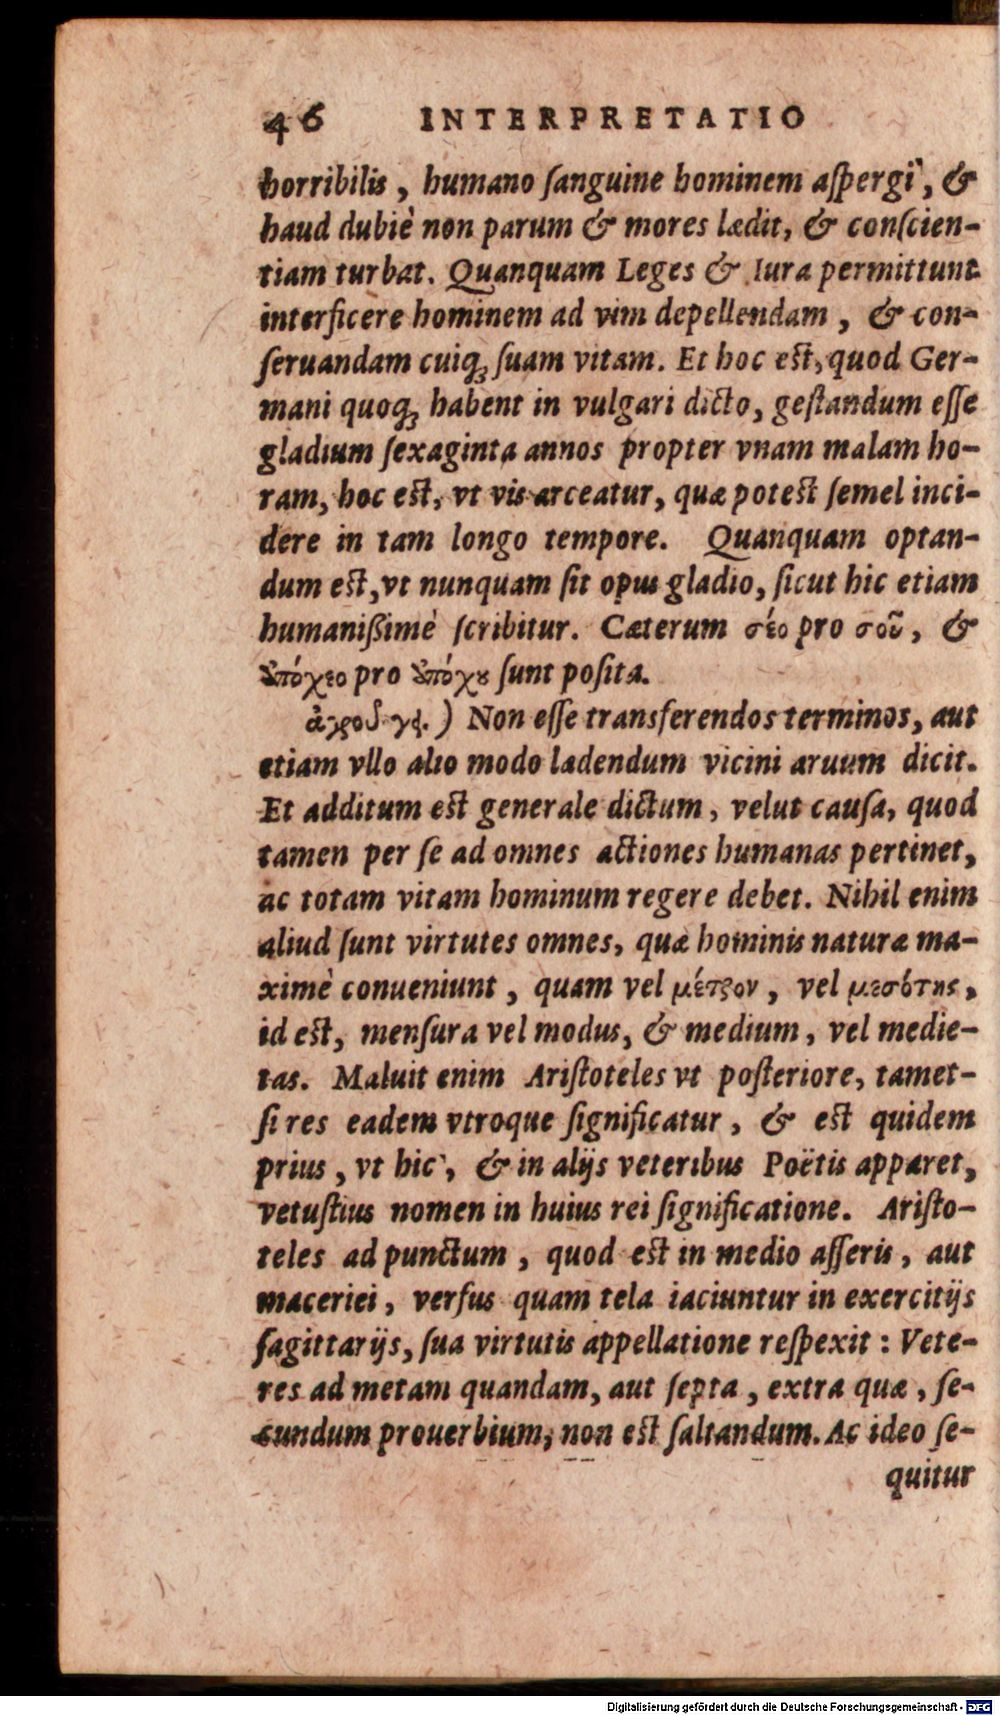 46 INTERPRETATIO
horribilis, humano ſanguine hominem aſpergi, &
haud dubiè non parum & mores lædit, & conſcien-
tiam turbat. Quanquam Leges & Iura permittunt
interficere hominem ad vim depellendam, & con-
ſeruandam cuiq; ſuam vitam. Et hoc eſt, quod Ger-
mani quoq; habent in vulgari dicto, geſtandum eſſe
gladium ſexaginta annos propter vnam malam ho-
ram, hoc eſt, vt vis arceatur, quæ poteſt ſemel inci-
dere in tam longo tempore. Quanquam optan-
dum eſt, vt nunquam ſit opus gladio, ſicut hic etiam
humanißimè ſcribitur. Cæterum σέο pro σοῦ, &
ὑπόχεο pro ὑπόχου ſunt poſita.
ἀγροῦ γϟ.) Non eſſe transferendos terminos, aut
etiam vllo alio modo lædendum vicini aruum dicit.
Et additum eſt generale dictum, velut cauſa, quod
tamen per ſe ad omnes actiones humanas pertinet,
ac totam vitam hominum regere debet. Nihil enim
aliud ſunt virtutes omnes, quæ hominis naturæ ma-
ximè conueniunt, quam vel μέτρον, vel μεσότης,
id eſt, menſura vel modus, & medium, vel medie-
tas. Maluit enim Ariſtoteles vt poſteriore, tamet-
ſi res eadem vtroque ſignificatur, & eſt quidem
prius, vt hic, & in alijs veteribus Poëtis apparet,
vetuſtius nomen in huius rei ſignificatione. Ariſto-
teles ad punctum, quod eſt in medio aſſeris, aut
maceriei, verſus quam tela iaciuntur in exercitijs
ſagittarijs, ſua virtutis appellatione reſpexit: Vete-
res ad metam quandam, aut ſepta, extra quæ, ſe-
cundum prouerbium, non eſt ſaltandum. Ac ideo ſe-
quitur
Digitalisierung gefördert durch die Deutsche Forschungsgemeinschaft - DFG